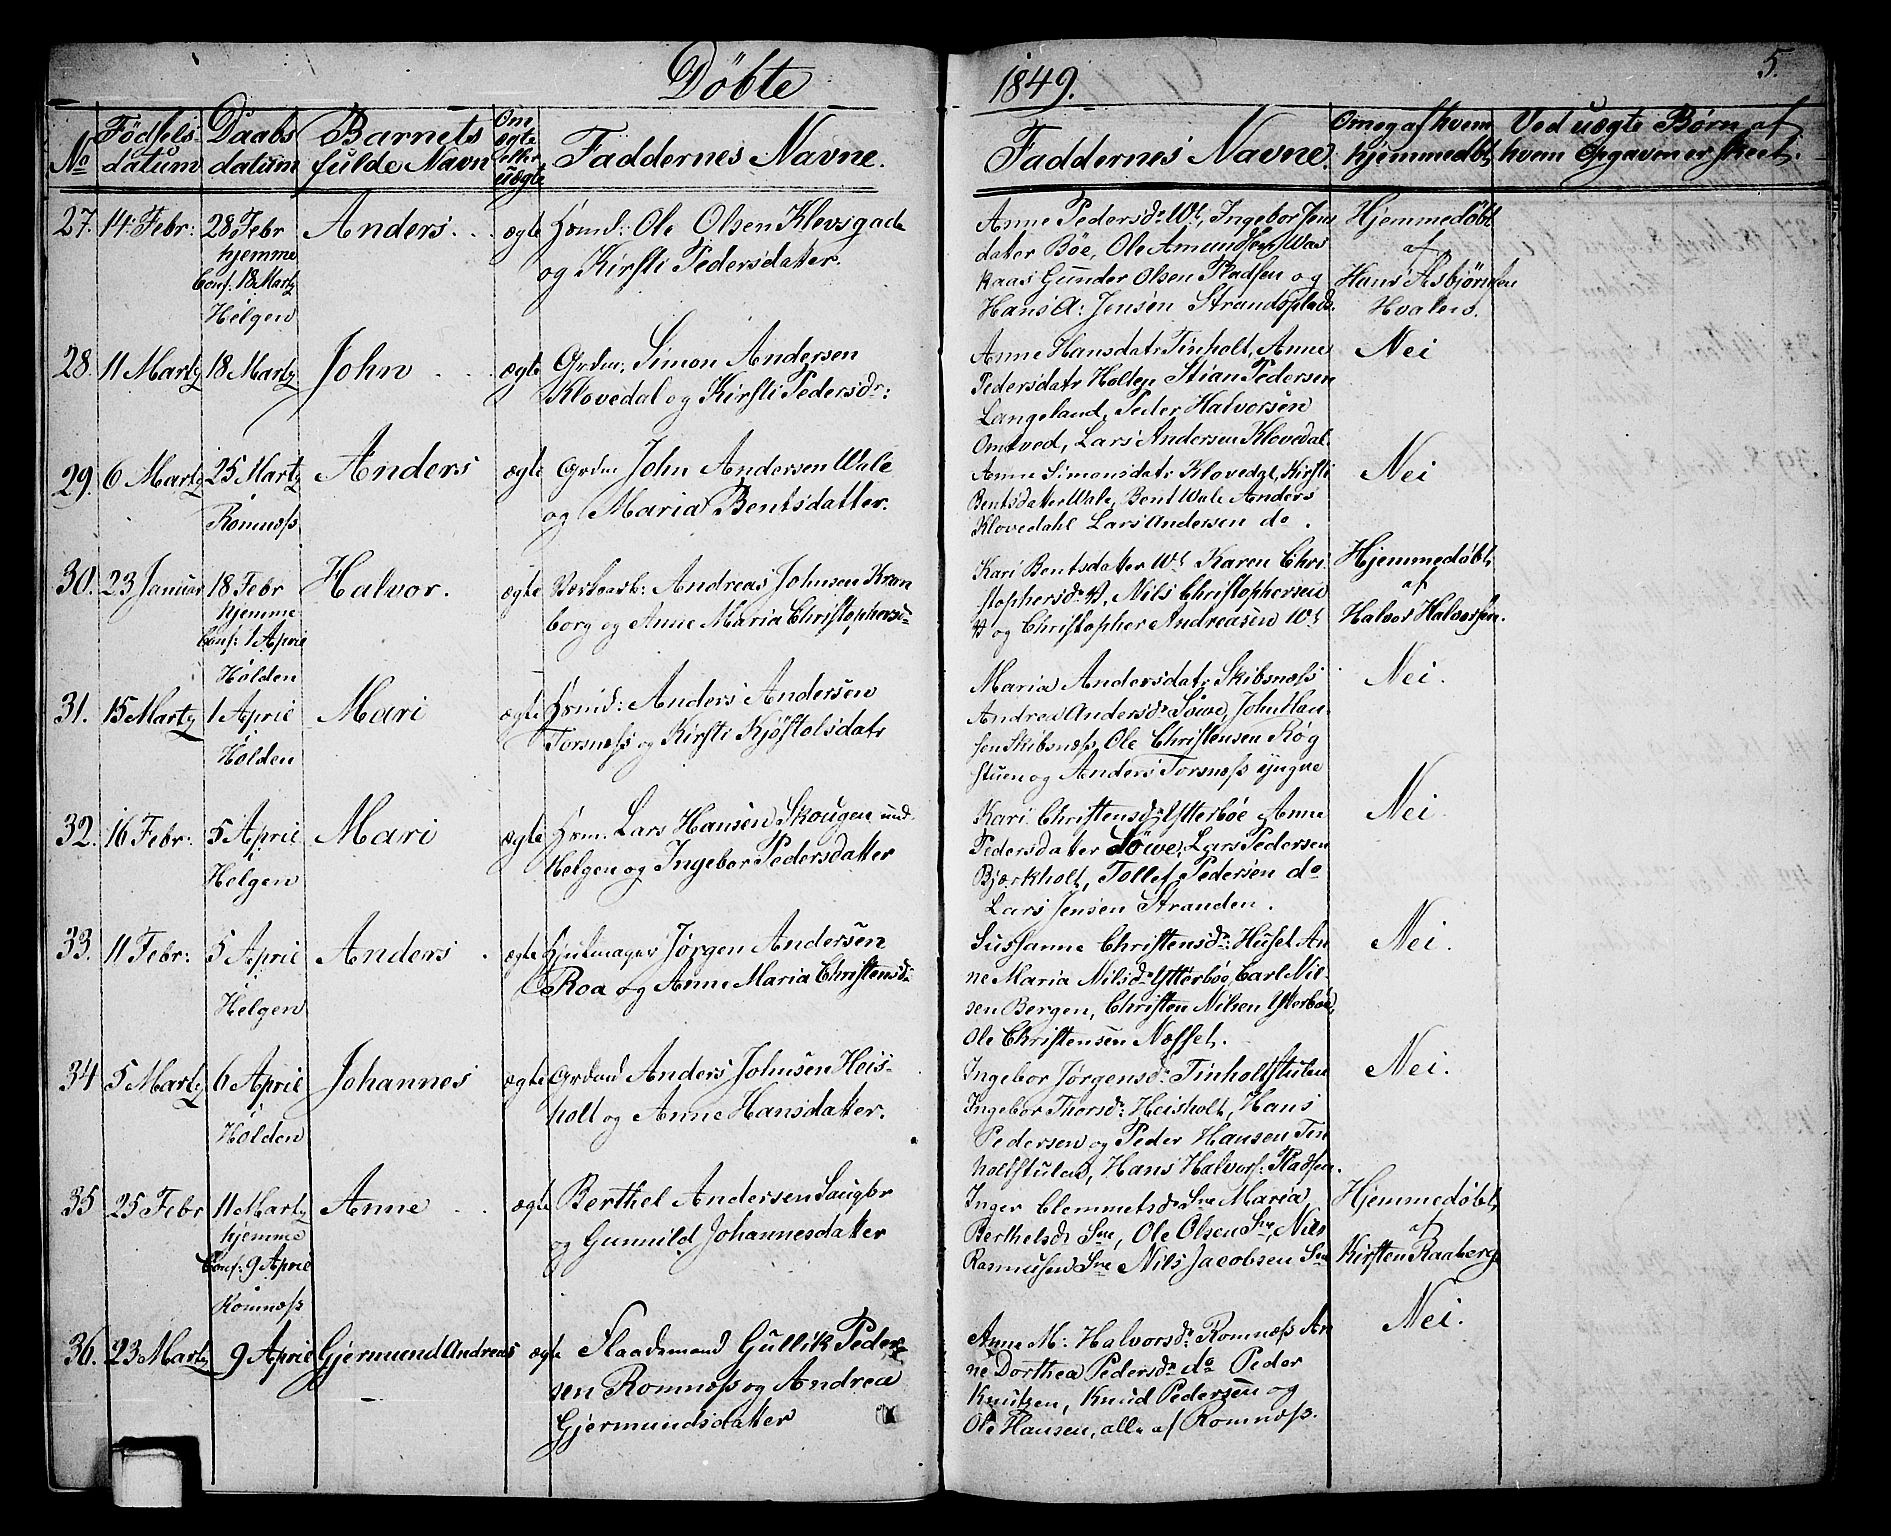 Døbte
1849.
5.
No
Fødsels-
datum
Daabs
datum
Barnets
fulde Navn
Om
ægte
eller
uægte
Faddernes Navne.
Faddernes Navne
Om og af hvem
hjemmedøbt
Ved uægte Børn af
hvem Opgaven er skeet.
27. 14 Febr: 28 Febr
hjemme
Conf. 18 Marty
Helgen
Anders
ægte
Huusmd: Ole Olsen Klevsgade
og Kirsti Pedersdatter.
Anne Pedersdr Wl, Ingebor Jens
dater Böe, Ole Amundsen Was
kaas Gunder Olsen Pladsen og
Hans A: Jensen Strandsplads.
Hjemmedøbt
af
Hans Asbjönsen
Hvalen.
28. 11 Marty 18 Marty
John
ægte
Grdm. Simon Andersen
Klovedal og Kirsti Pedersdr:
Anne Hansdatr Tinholt, Anne
Pedersdatr Holten Stian Pedersen
Langeland, Peder Halvorsen
Omtved, Lars Andersen Klovedal.
Nei
29. 6 Marty 25 Marty
Romnæss
Anders
ægte
Grdm John Andersen Wale
og Maria Bentsdatter.
Anne Simonsdatr Klovedal, Kirsti
Bentsdatter Wale, Bent Wale Anders
Klovedahl Lars Andersen do.
Nei
30. 23 Januar 18 Febr
hjemme
Conf: 1 April
Holden
Halvor.
ægte
Andreas Johnsen Kron
borg og Anne Maria Christophersd
Kari Bentsdatter Wl Karen Chri
stophersdr, Nils Christophersen
og Christopher Andreasen Wl
Hjemmedøbt
af
Halvor Halvorsen.
31. 15 Marty 1 April
Holden
Mari
ægte
Huusmd: Anders Andersen
Torsnæss og Kirsti Kjöstolsdatr
Maria Andersdatr Skibsnæss
Andrea Andersdr Söwe, John Han
sen Skibsnæss Ole Christensen Røg
stuen og Anders Torsnæss yngre
Nei.
32. 16 Febr: 5 April
Helgen
Mari
ægte
Huusm. Lars Hansen Skougen und.
Helgen og Ingebor Pedersdatter
Kari Christensdr Ytterböe Anne
Pedersdatter Söwe, Lars Pedersen
Bjærkholt, Tollef Pedersen do
Lars Jensen Stranden.
Nei.
33. 11 Febr: 5 April
Helgen
Anders
ægte
Hjulmager Jørgen Andersen
Roa og Anne Maria Christensd
Sussanne Christensdr: Huset An
ne Maria Nilsdr Ytterböe Carl Nil-
sen Bergen, Christen Nilsen Ytterböe,
Ole Christensen Næsset.
Nei.
34 5 Marty 6 April
Holden
Johannes
ægte
Grdmd Anders Johnsen Heis-
holt og Anne Hansdatter.
Ingebor Jørgensdr Tinholtstulen
Ingebor Thorsdr: Heisholt, Hans
Pedersen og Peder Hansen Tin
holtstulen, Hans Halvors: Pladsen.
Nei.
35 25 Febr 11 Marty
hjemme
Conf: 9 April
Romnæss
Anne
ægte
Berthel Andersen Saugbr
og Gunnild Johannesdatter
Inger Clemmetsdr Sne Maria
Berthelsdr Sne, Ole Olsen Sne, Nils
Rasmusen Sne Nils Jacobsen Sne
Hjemmedøbt
af
Kirsten Raaberg
36. 23 Marty 9 April
Gjermund Andreas
ægte
Flaadsmand Gullik Peder-
sen Romnæss og Andrea
Gjermundsdatter
Anne M: Halvorsdr Romnæss An
ne Dorthea Pedersdr do Peder
Knutzen, Knud Pedersen og
Ole Hansen, alle af Romnæss.
Nei.